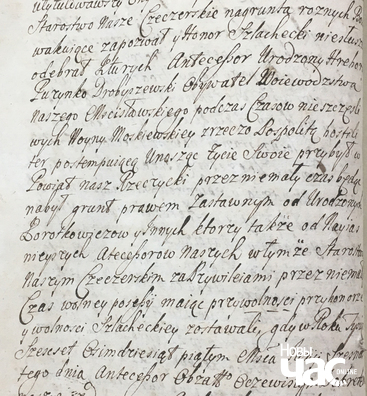 Starostwo Nasze Czeczerskie nagrunta roznych
wakuiące zapozwał y Honor Szlachecki niesłusz
odebrał których Antecessor Urodzony
Puzynko Drobyszewski Obywatel Woiewodztwa
Naszego Mscisławskiego podczas Czasow nieszczęśli
wych Woyny Moskiewskiey zrzeczo Pospolitą hostili
ter postempuiącą Unosząc życie Swoie przybył w
Powiat nasz Rzeczycki przez niemały czas będąc
nabył grunt prawem Zastawnym od Urodzonych
Borotkowiczow y Innych ktorzy także od Nayias
nieyszych Atecessorow Naszych w tymże Starostwie
Naszym Czeczerskim za Przywileiami przez niemały
Czas wolney posessyi maiąc przy wolności przy honorze
y wolności Szlacheckiey zostawali, gdy w Roku Tysiąc
Szesset Ośmdziesiąt piątym Msca
tego dnia Antecessor Obżałło Oczewisty
НОВЫ ЧАС ONLINE